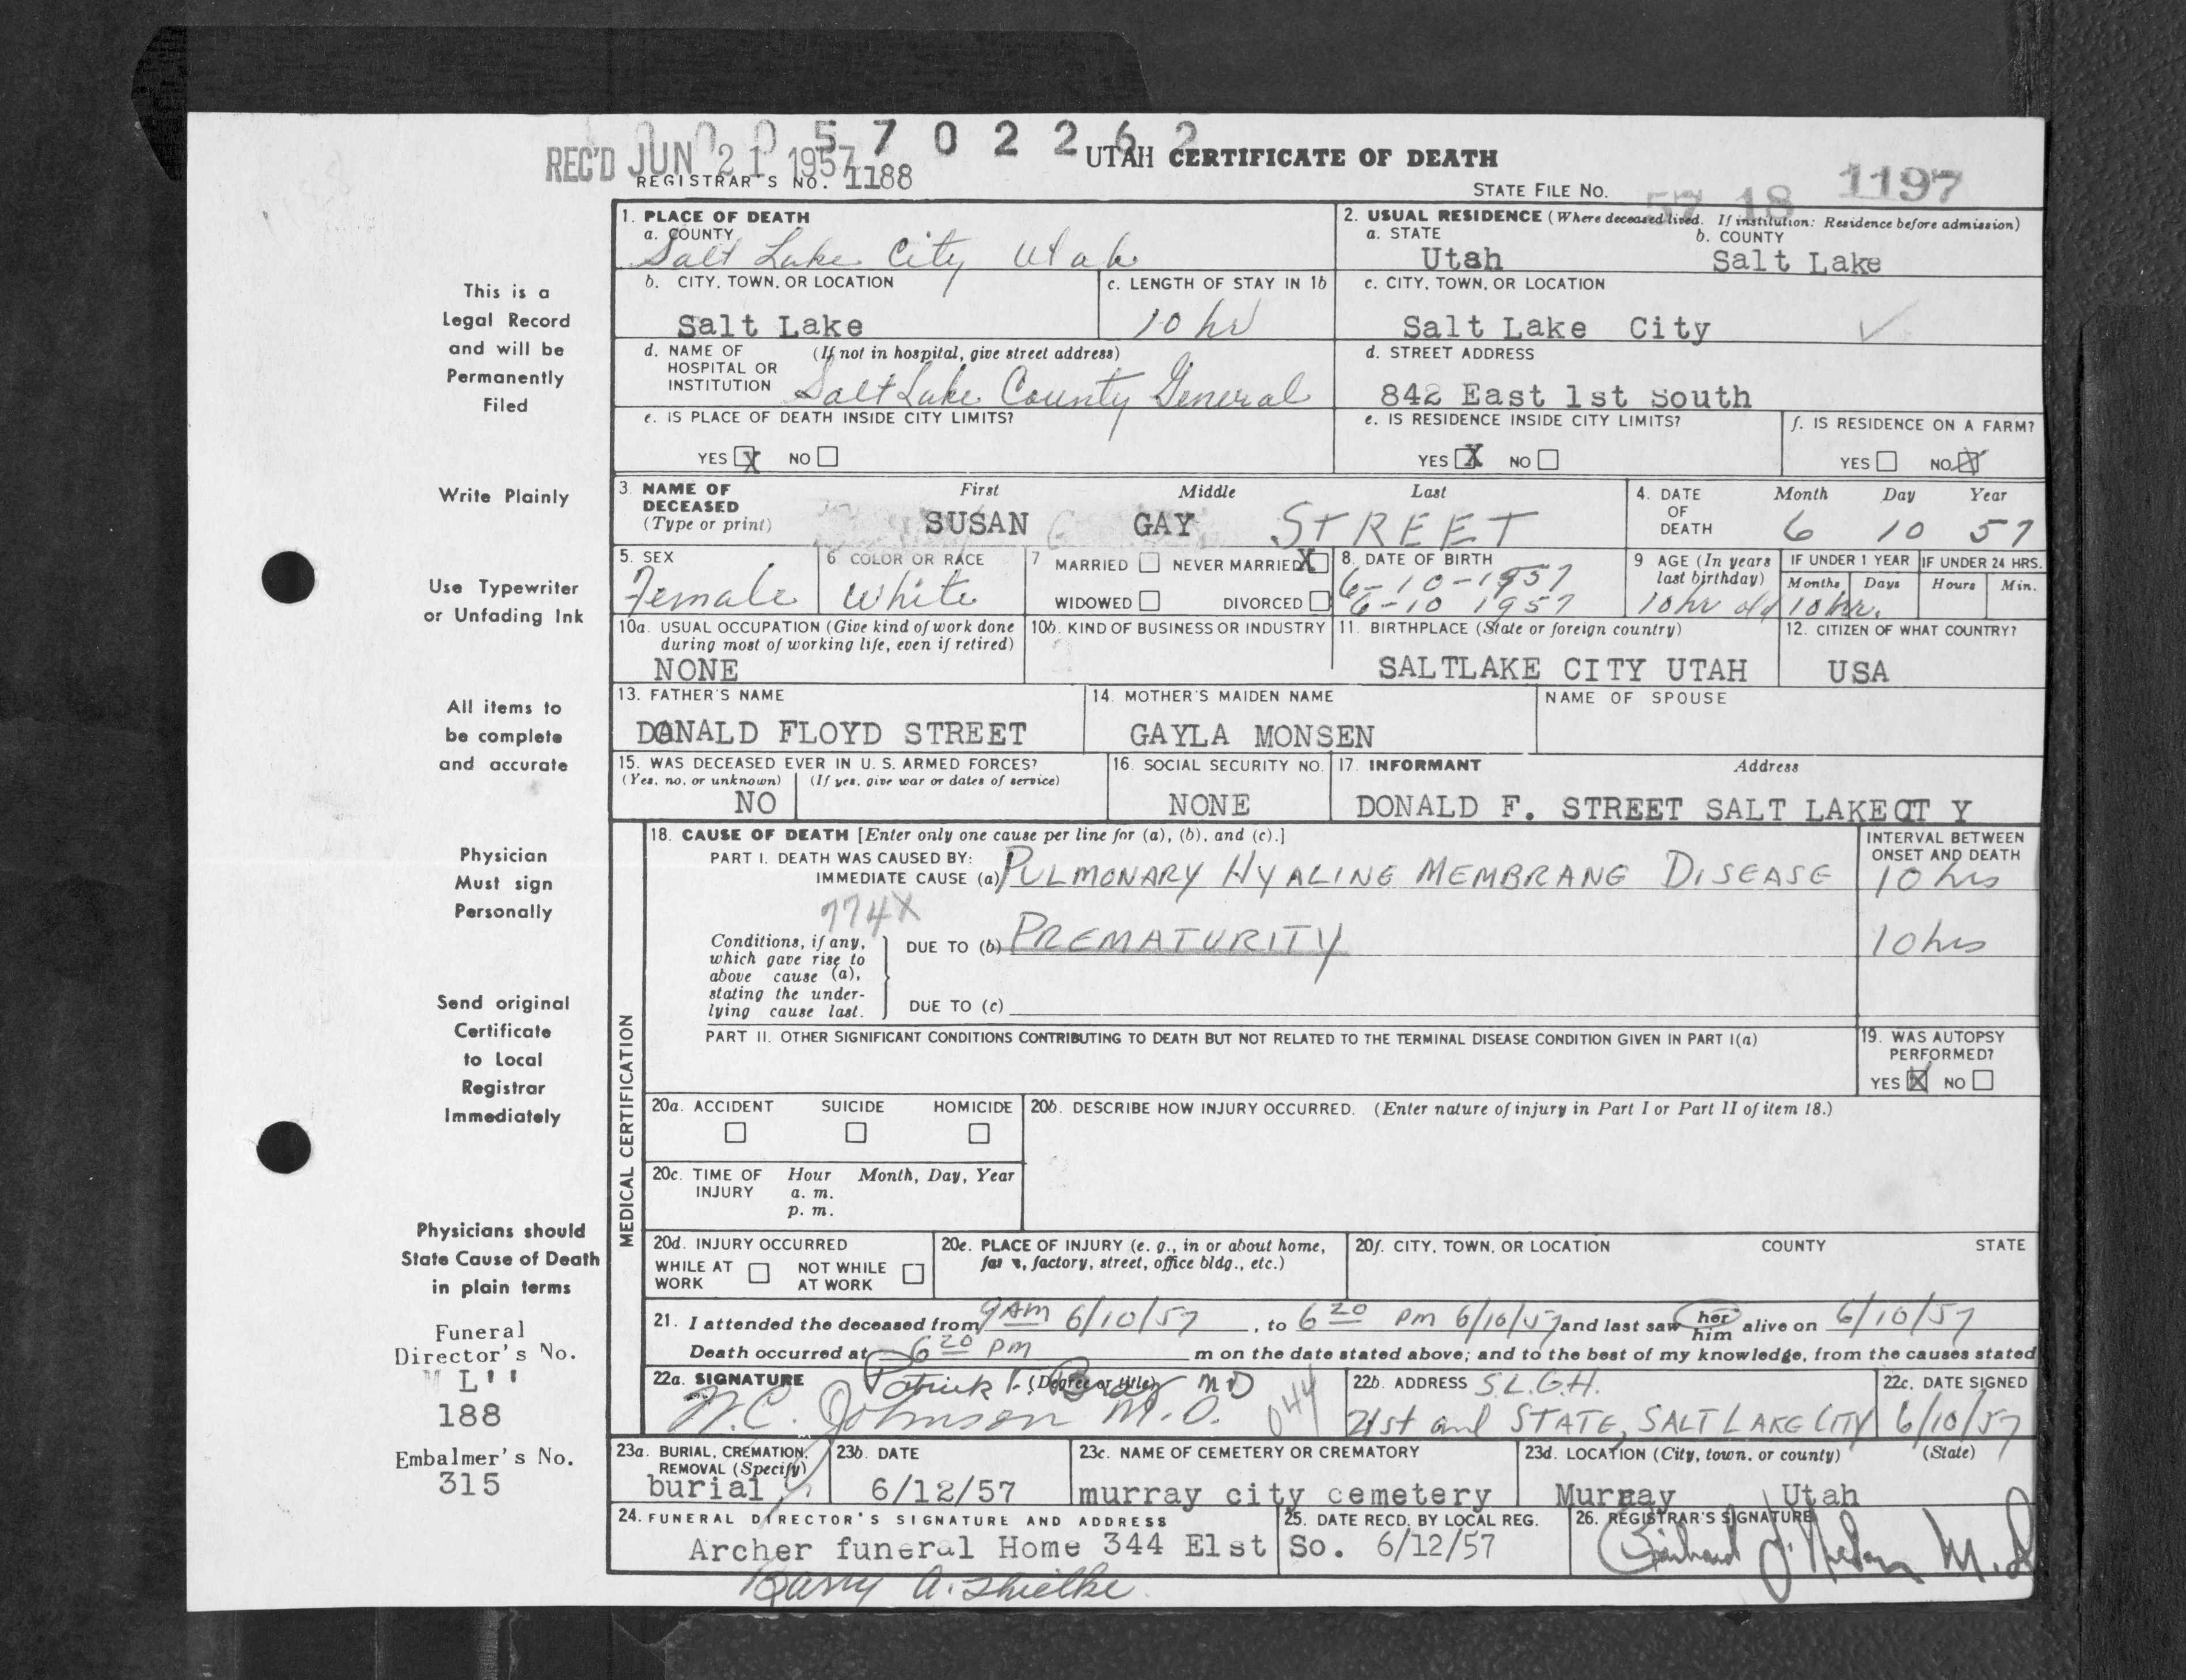 0 0 0 5 7 0 2 2 6 2
REC'D JUN 21 1957
UTAH CERTIFICATE OF DEATH
REGISTRAR'S NO. 1188
STATE FILE NO. 57 18 1197
1. PLACE OF DEATH
a. COUNTY
Salt Lake City Utah
2. USUAL RESIDENCE (Where deceased lived. If institution: Residence before admission)
a. STATE b. COUNTY
Utah Salt Lake
b. CITY, TOWN, OR LOCATION
Salt Lake
c. LENGTH OF STAY IN 1b
10 hr
c. CITY, TOWN, OR LOCATION
Salt Lake City
d. NAME OF HOSPITAL OR INSTITUTION (If not in hospital, give street address)
Salt Lake County General
d. STREET ADDRESS
842 East 1st South
e. IS PLACE OF DEATH INSIDE CITY LIMITS?
YES X NO
e. IS RESIDENCE INSIDE CITY LIMITS?
YES X NO
f. IS RESIDENCE ON A FARM?
YES NO X
3. NAME OF DECEASED (Type or print)
First Middle Last
SUSAN GAY STREET
4. DATE OF DEATH Month Day Year
6 10 57
5. SEX
Female
6 COLOR OR RACE
White
7 MARRIED NEVER MARRIED X
WIDOWED DIVORCED
8. DATE OF BIRTH
6-10-1957
6-10 1957
9 AGE (In years last birthday)
10 hr old
IF UNDER 1 YEAR IF UNDER 24 HRS.
Months Days Hours Min.
10 hr.
10a. USUAL OCCUPATION (Give kind of work done during most of working life, even if retired)
NONE
10b. KIND OF BUSINESS OR INDUSTRY
11. BIRTHPLACE (State or foreign country)
SALTLAKE CITY UTAH
12. CITIZEN OF WHAT COUNTRY?
USA
13. FATHER'S NAME
DONALD FLOYD STREET
14. MOTHER'S MAIDEN NAME
GAYLA MONSEN
NAME OF SPOUSE
15. WAS DECEASED EVER IN U. S. ARMED FORCES?
(Yes, no, or unknown) (If yes, give war or dates of service)
NO
16. SOCIAL SECURITY NO.
NONE
17. INFORMANT Address
DONALD F. STREET SALT LAKECIT Y
MEDICAL CERTIFICATION
18. CAUSE OF DEATH [Enter only one cause per line for (a), (b), and (c).]
INTERVAL BETWEEN ONSET AND DEATH
PART I. DEATH WAS CAUSED BY:
IMMEDIATE CAUSE (a) PULMONARY HYALINE MEMBRANE DISEASE 10 hrs
774X
Conditions, if any, which gave rise to above cause (a), stating the under-lying cause last.
DUE TO (b) PREMATURITY 10 hrs
DUE TO (c)
PART II. OTHER SIGNIFICANT CONDITIONS CONTRIBUTING TO DEATH BUT NOT RELATED TO THE TERMINAL DISEASE CONDITION GIVEN IN PART I(a)
19. WAS AUTOPSY PERFORMED?
YES X NO
20a. ACCIDENT SUICIDE HOMICIDE
20b. DESCRIBE HOW INJURY OCCURRED. (Enter nature of injury in Part I or Part II of item 18.)
20c. TIME OF INJURY Hour Month, Day, Year
a. m.
p. m.
20d. INJURY OCCURRED
WHILE AT WORK NOT WHILE AT WORK
20e. PLACE OF INJURY (e. g., in or about home, farm, factory, street, office bldg., etc.)
20f. CITY, TOWN, OR LOCATION COUNTY STATE
21. I attended the deceased from 9 AM 6/10/57, to 6 20 PM 6/10/57 and last saw her him alive on 6/10/57
Death occurred at 6 20 PM m on the date stated above; and to the best of my knowledge, from the causes stated
22a. SIGNATURE (Degree or title)
Patrick F. Bray MD
W.C. Johnson M.D. 044
22b. ADDRESS S.L.G.H.
21st and STATE, SALT LAKE CITY
22c. DATE SIGNED
6/10/57
23a. BURIAL, CREMATION, REMOVAL (Specify)
burial
23b. DATE
6/12/57
23c. NAME OF CEMETERY OR CREMATORY
murray city cemetery
23d. LOCATION (City, town, or county) (State)
Murray Utah
24. FUNERAL DIRECTOR'S SIGNATURE AND ADDRESS
Archer funeral Home 344 E1st So.
25. DATE RECD. BY LOCAL REG.
6/12/57
26. REGISTRAR'S SIGNATURE
M.D
This is a
Legal Record
and will be
Permanently
Filed
Write Plainly
Use Typewriter
or Unfading Ink
All items to
be complete
and accurate
Physician
Must sign
Personally
Send original
Certificate
to Local
Registrar
Immediately
Physicians should
State Cause of Death
in plain terms
Funeral
Director's No.
L''
188
Embalmer's No.
315